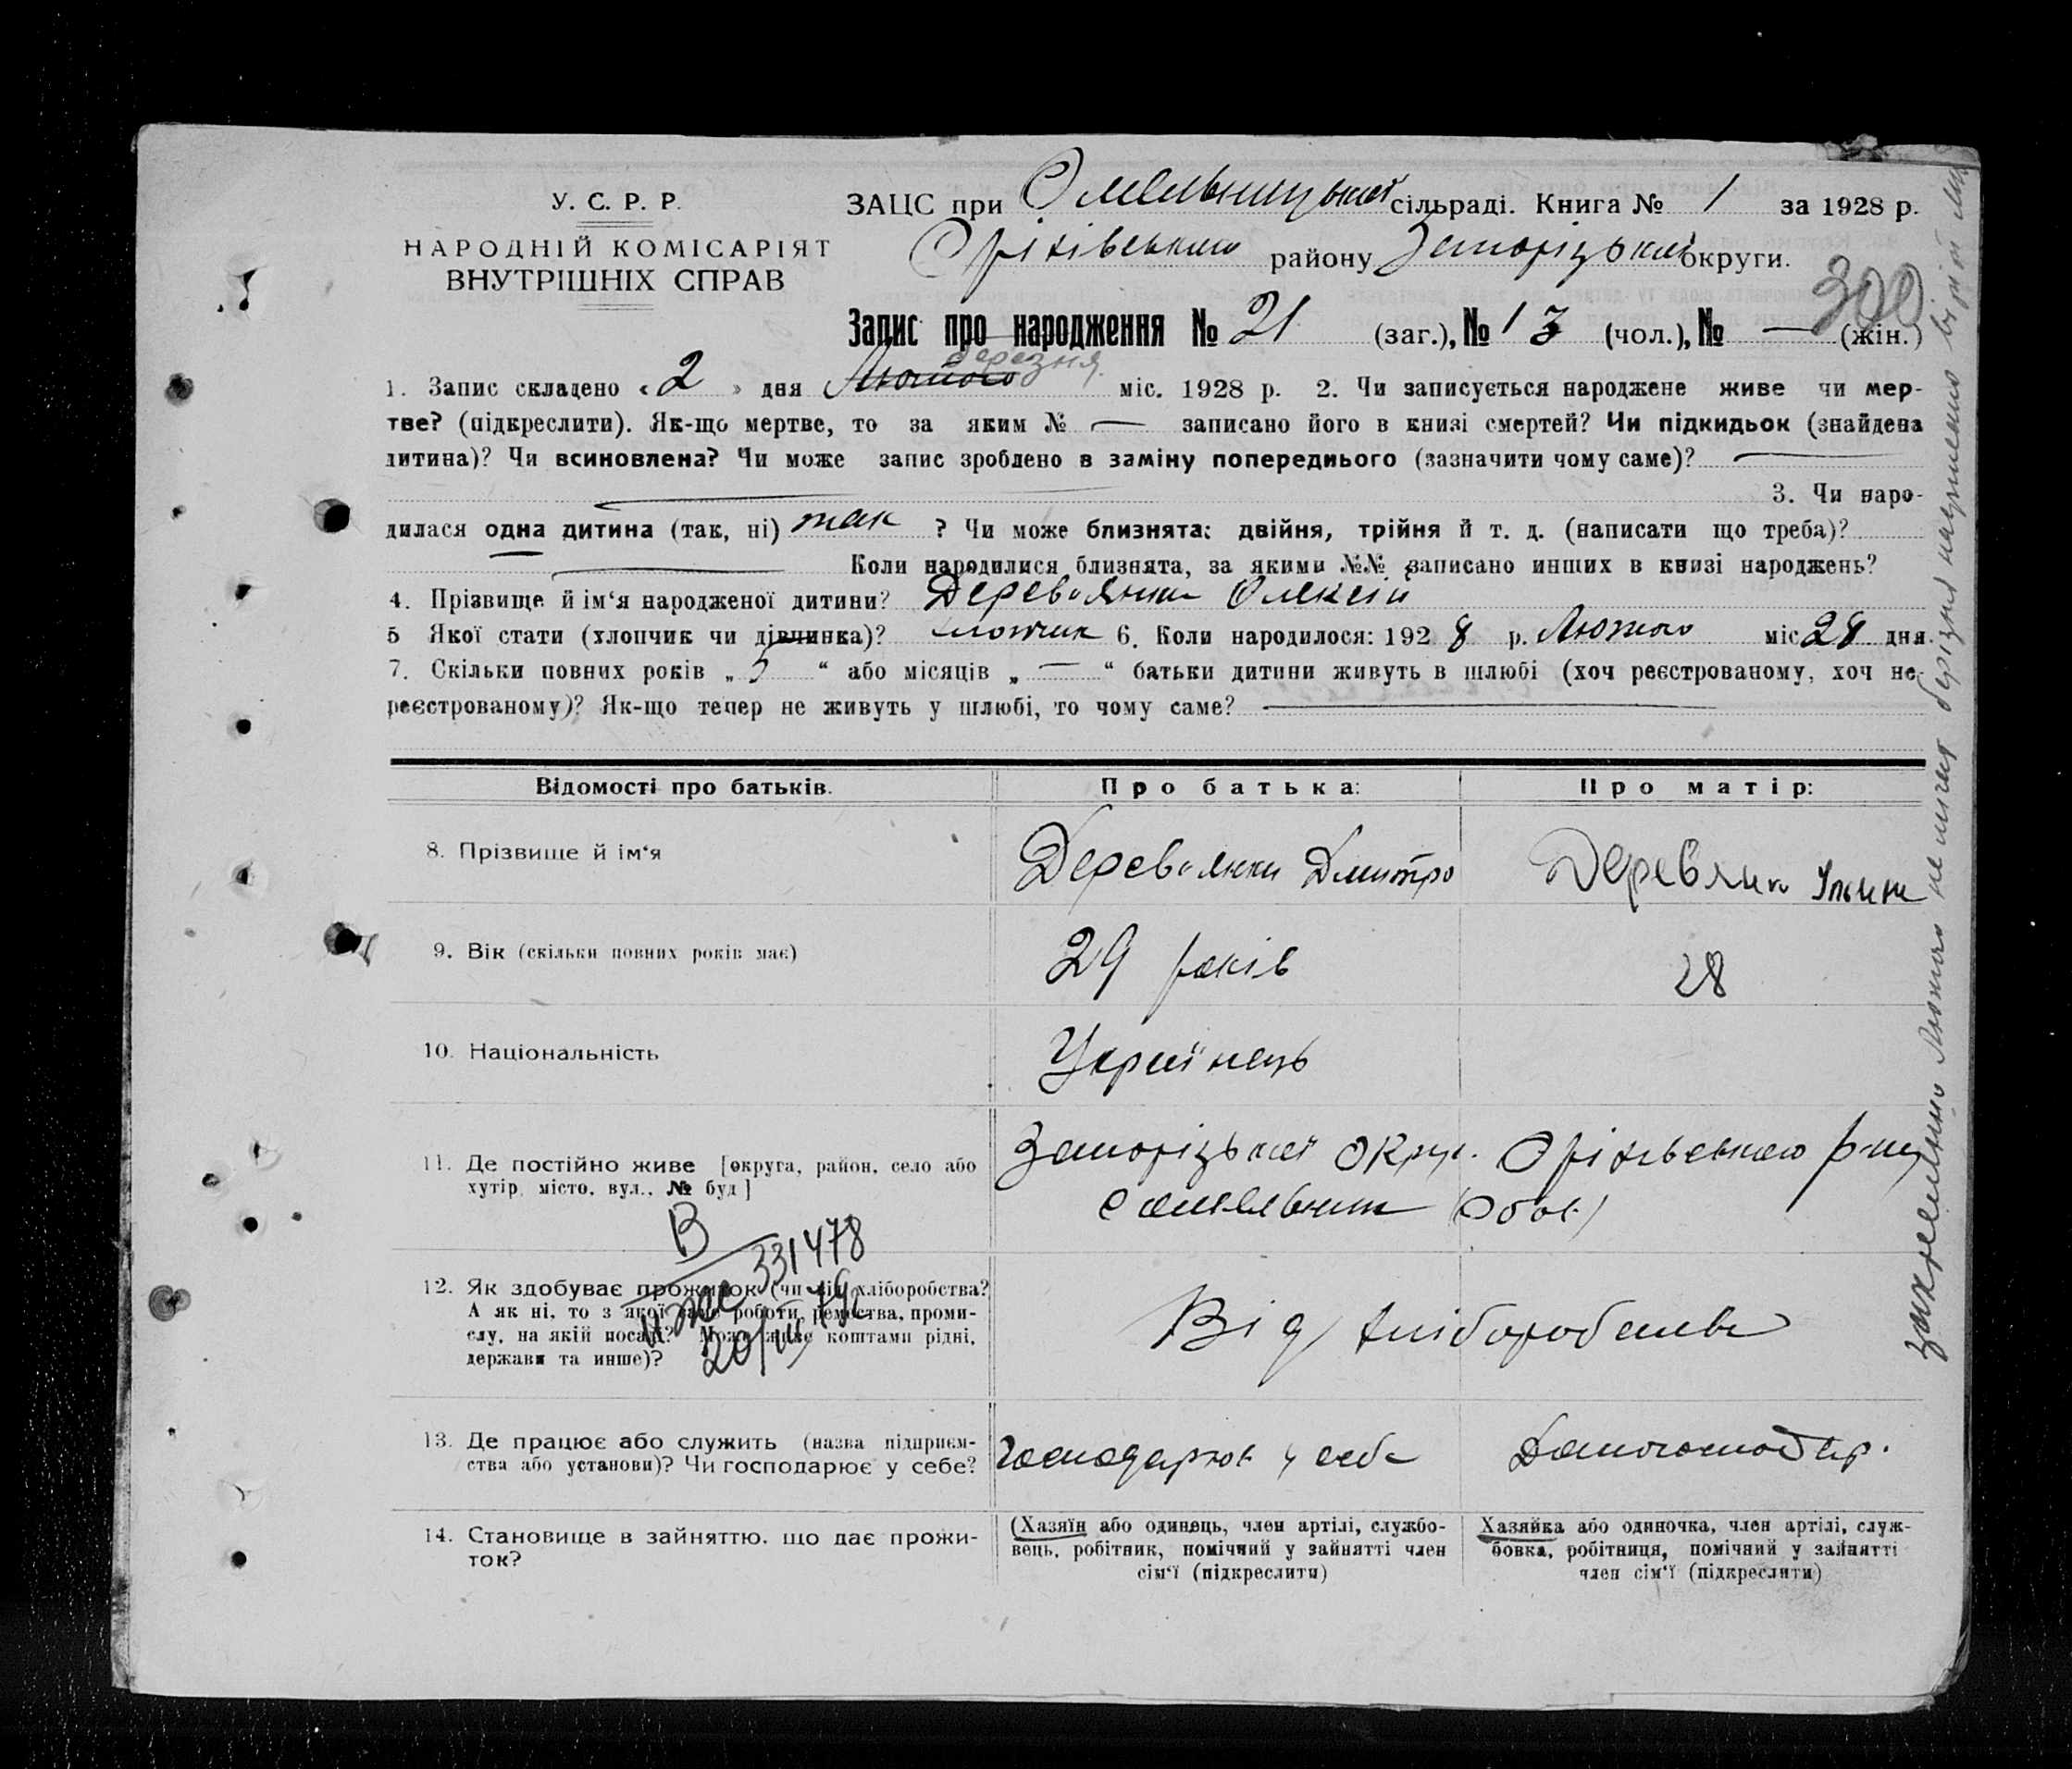 У. С. Р. Р.
НАРОДНІЙ КОМІСАРІЯТ
ВНУТРІШНІХ СПРАВ
ЗАЦС при Омельницькій сільраді. Книга № 1 за 1928 р.
Оріхівського району Запоріцької округи.
300
Запис про народження № 21 (заг.), № 13 (чол.), № — (жін.)
березня
1. Запис складено «2» дня Лютого міс. 1928 р. 2. Чи записується народжене живе чи мер-
тве? (підкреслити). Як-що мертве, то за яким № — записано його в книзі смертей? Чи підкидьок (знайдена
дитина)? Чи всиновлена? Чи може запис зроблено в заміну попереднього (зазначити чому саме)? —
3. Чи наро-
дилася одна дитина (так, ні) так ? Чи може близнята: двійня, трійня й т. д. (написати що треба)?
Коли народилися близнята, за якими №№ записано инших в книзі народжень?
4. Прізвище й ім‘я народженої дитини? Дерев‘янко Олексій
5 Якої стати (хлопчик чи дівчинка)? хлопчик 6. Коли народилося: 1928 р. Лютого міс 28 дня.
7. Скільки повних років „ 5 “ або місяців „ — “ батьки дитини живуть в шлюбі (хоч реєстрованому, хоч не-
реєстрованому)? Як-що тепер не живуть у шлюбі, то чому саме? —
Відомості про батьків.
Про батька:
Про матір:
8. Прізвище й ім‘я
Дерев‘янко Дмитро
Деревянко
9. Вік (скільки повних років має)
29 років
28
10. Національність
Украінець
11. Де постійно живе [округа, район, село або
хутір, місто, вул., № буд]
Запоріцької округ. Оріхівського р-ну
с Омельник (Обоє)
В
331478
20/III
12. Як здобуває прожиток (чи від хліборобства?
А як ні, то з якої саме роботи, ремества, проми-
слу, на якій посаді? Може живе коштами рідні,
держави та инше)?
Від хліборобства
13. Де працює або служить (назва підприєм-
ства або установи)? Чи господарює у себе?
господарює у себе
Домогосподар.
14. Становище в зайняттю, що дає прожи-
ток?
(Хазяїн або одинець, член артілі, службо-
вець, робітник, помічний у зайнятті член
сім‘ї (підкреслити)
Хазяйка або одиночка, член артілі, служ-
бовка, робітниця, помічний у зайнятті
член сім‘ї (підкреслити)
закреслино Лютого не лічит березня написано вірит